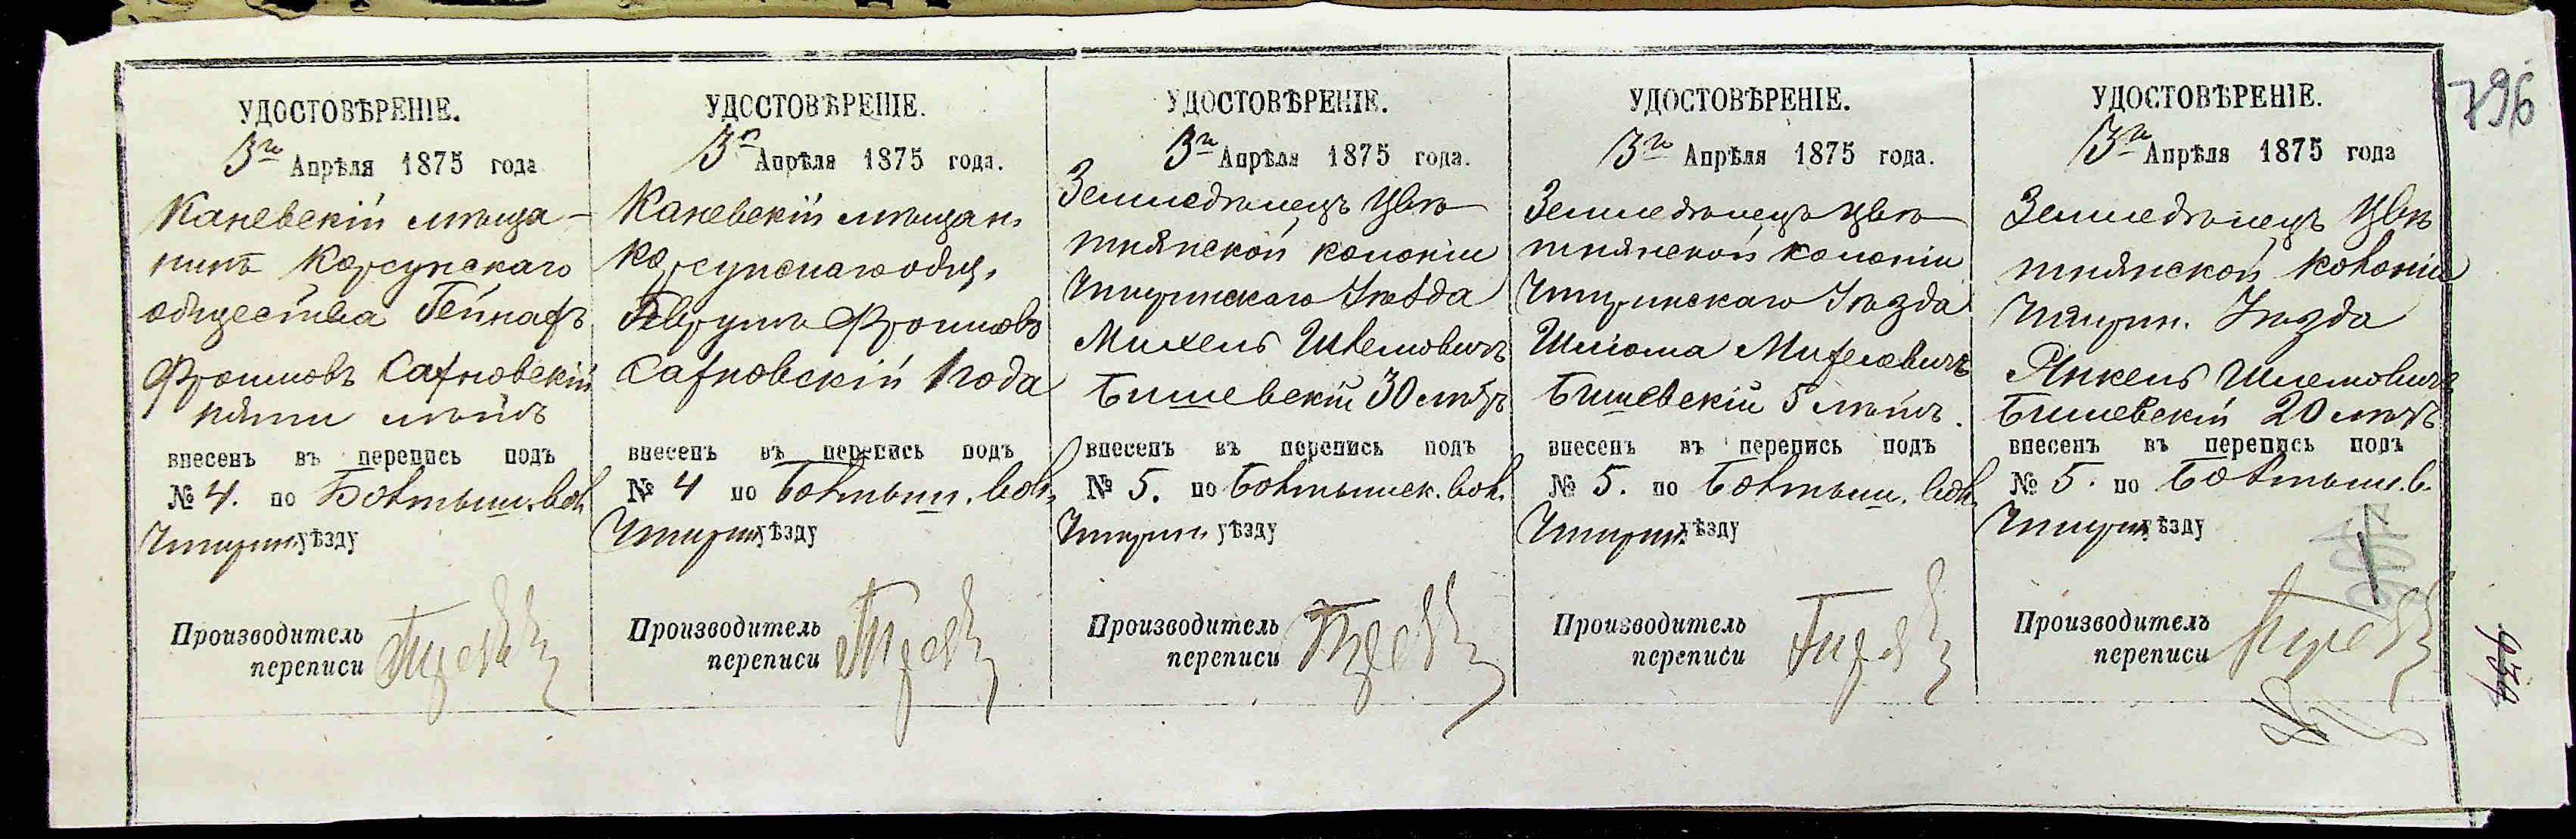 796
УДОСТОВѢРЕНІЕ.
3го Апрѣля 1875 года
Каневскій мѣща-
нинъ Корсунскаго
общества
Фроимовъ
пяти лѣтъ
внесенъ въ перепись подъ
№ 4. по Болтыш. вол.
Чигирин. уѣзду
Производитель
переписи
УДОСТОВѢРЕНІЕ.
3го Апрѣля 1875 года.
Каневскій мѣщан.
Корсунскаго общ.
Фроимовъ
1 года
внесенъ въ перепись подъ
№ 4 по Болтыш. вол.
Чигирин. уѣзду
Производитель
переписи
УДОСТОВѢРЕНІЕ.
3го Апрѣля 1875 года.
Земледѣлецъ Цвѣ-
тнянской колоніи
Чигиринскаго Уѣзда
Михель Шлемовичъ
Бишевскій 30 лѣтъ
внесенъ въ перепись подъ
№ 5. по Болтышск. вол.
Чигирин уѣзду
Производитель
переписи
УДОСТОВѢРЕНІЕ.
3го Апрѣля 1875 года.
Земледѣлецъ Цвѣ-
тнянской колоніи
Чигиринскаго Уѣзда
Шліома Михелевичъ
Бишевскій 5 лѣтъ.
внесенъ въ перепись подъ
№ 5. по Болтыш. вол.
Чигирин. уѣзду
Производитель
переписи
УДОСТОВѢРЕНІЕ.
3го Апрѣля 1875 года
Земледѣлецъ Цвѣ
тнянской колоніи
Чигирин. Уѣзда
Янкель Шлемовичъ
Бишевскій 20 лѣтъ
внесенъ въ перепись подъ
№ 5. по Болтыш. в.
Чигирин уѣзду
Производитель
переписи